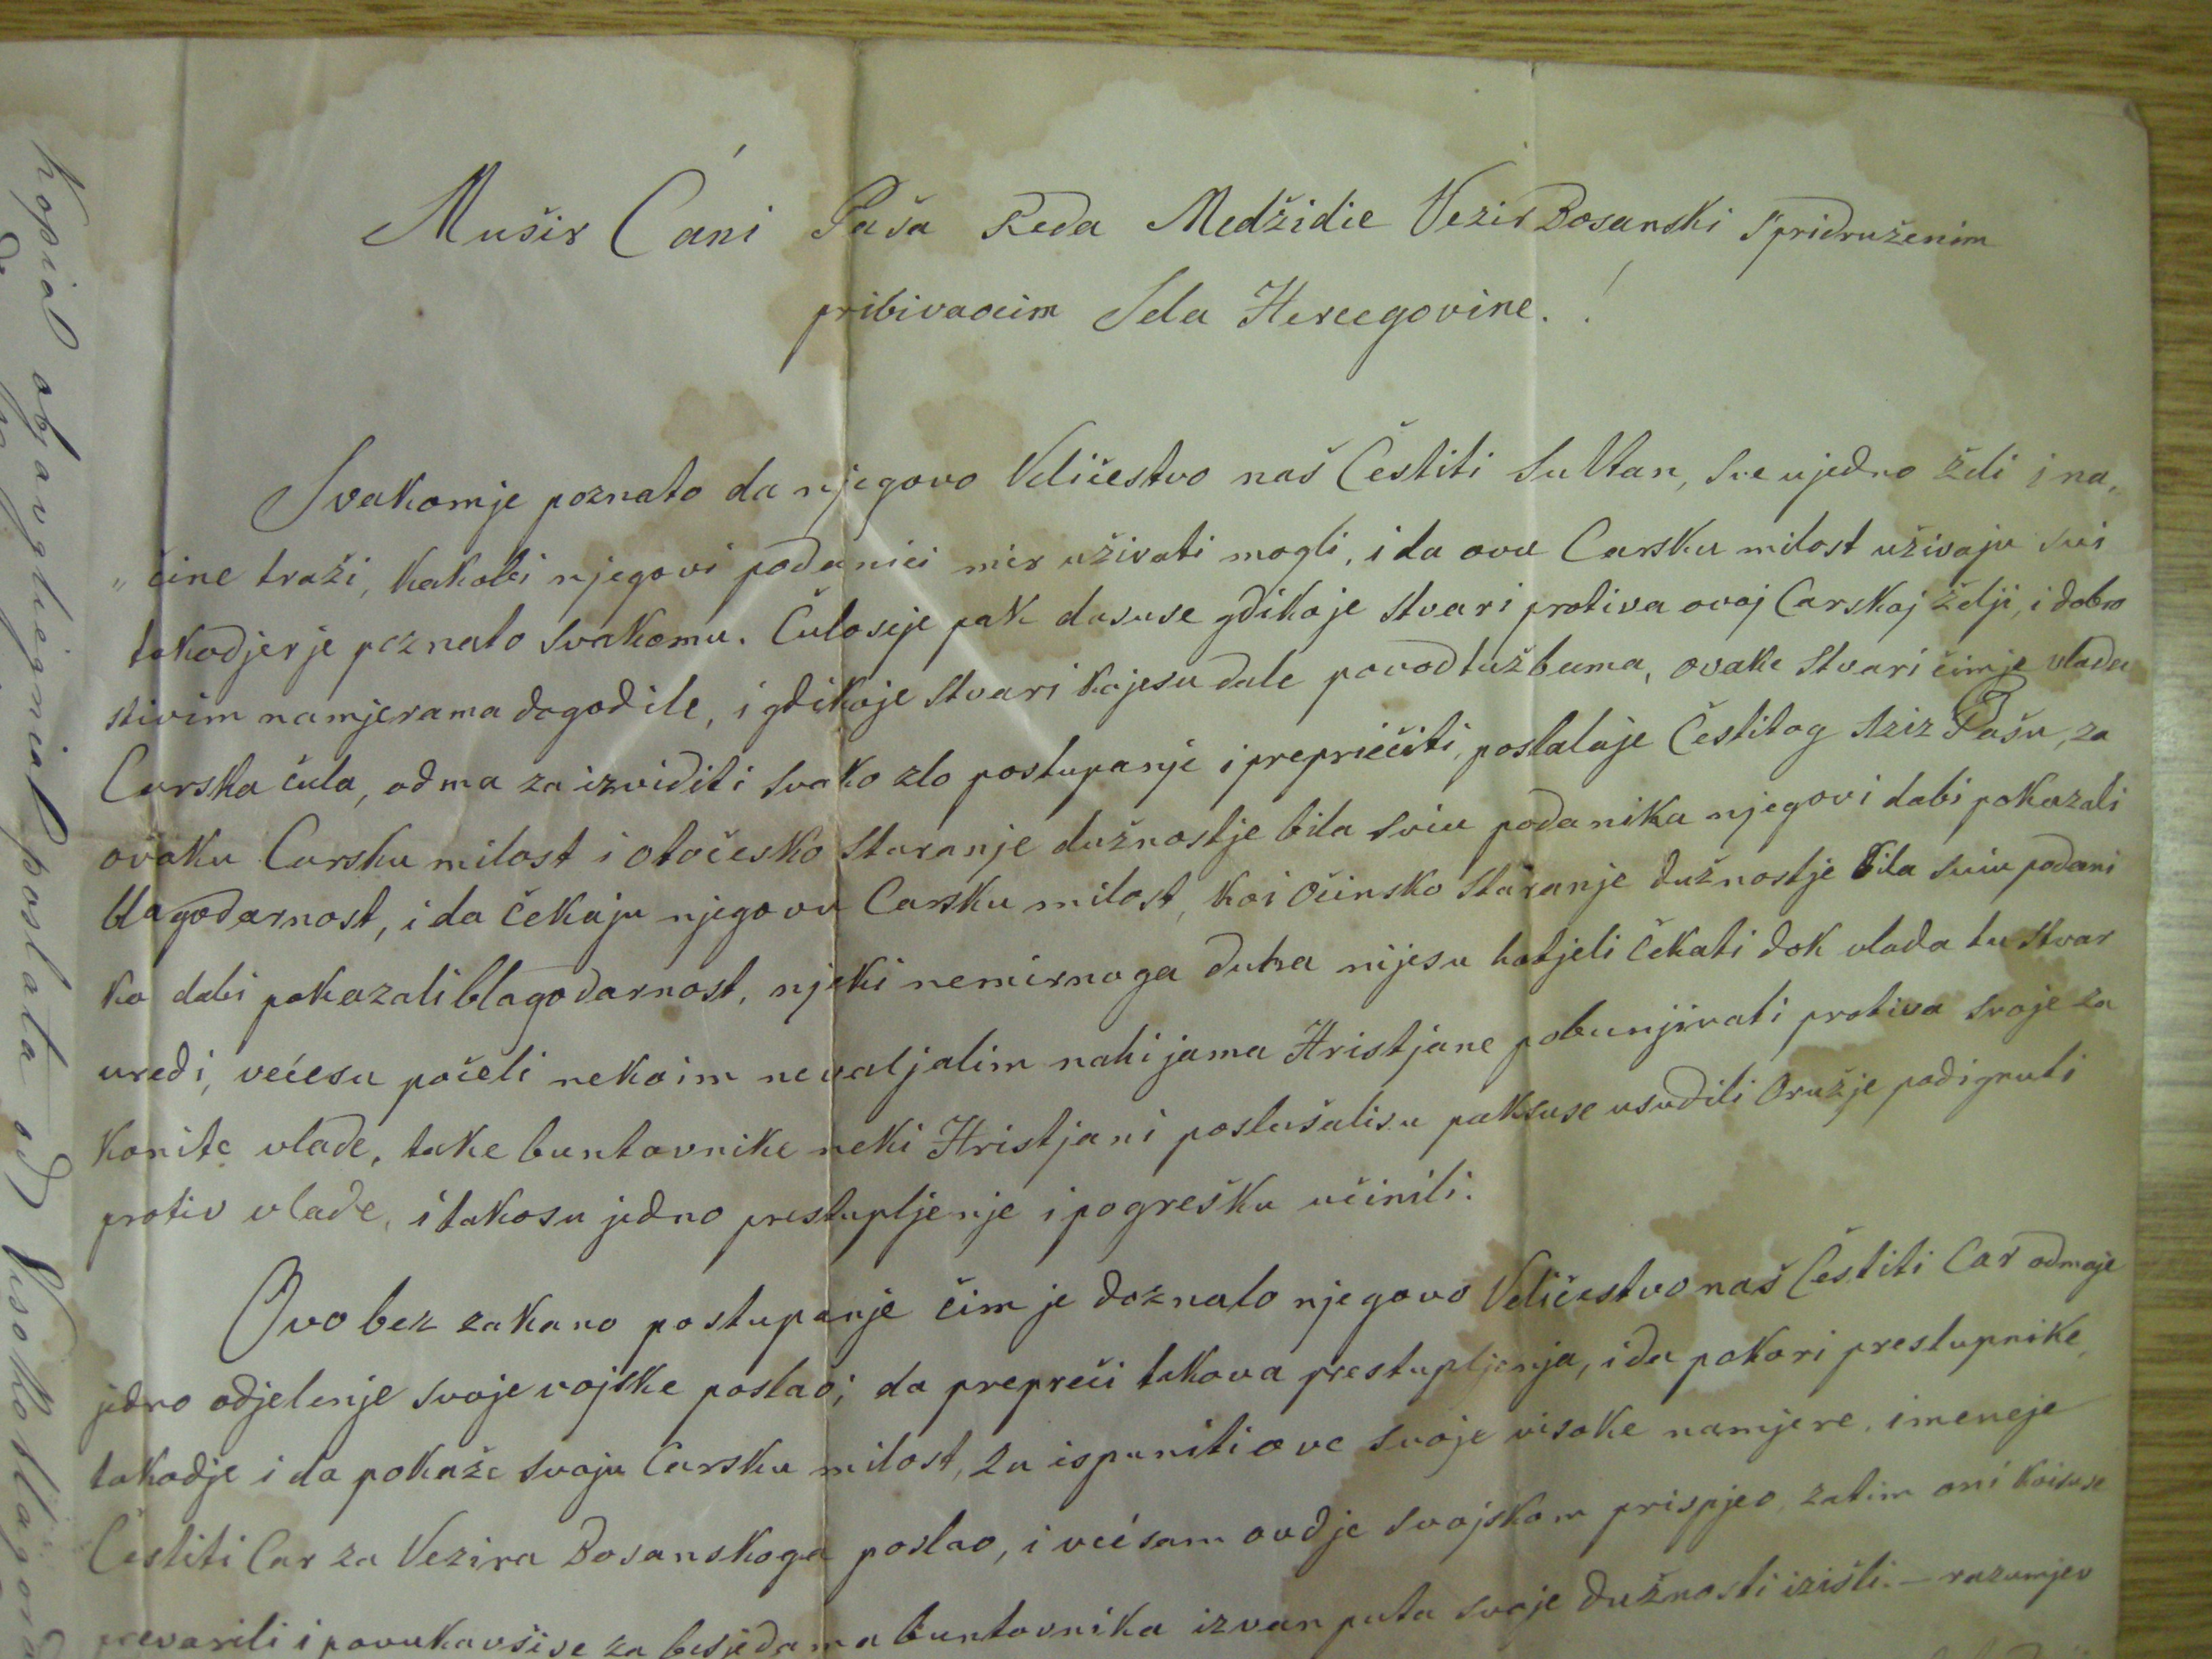 Mušir Ćani Paša Reda Medžidie Vezir Bosanski Spridruženim
pribivaocim Sela Hercegovine.!
Svakomje poznato da njegovo Veličestvo naš Čestiti Sultan, sveujedno želi i na„
„čine traži, kakobi njegovi podanici mir uživati mogli, i da ovu Carsku milost uživaju svi
takodjer je poznato svakomu. Čuloseje pak dasuse gdikoje stvari protiva ovoj Carskoj želji, i dobro
stivim namjerama dogodile, i gdikoje stvari kojesu dale povod tužbama, ovake stvari čimje vlada
Carska čula, odma za izviditi svako zlo postupanje i prepriečiti, poslalaje Čestitog Aziz Pašu, za
ovaku Carsku milost i otočesko staranje dužnostje bila sviu podanika njegovi dabi pokazali
blagodarnost, i da čekaju njegovu Carsku milost, koi Očinsko staranje dužnostje bila sviu podani
ka dabi pokazali blagodarnost, njeki nemirnoga duha nijesu hotjeli čekati dok vlada tu stvar
uredi, većesu počeli nekoim nevaljalim nahijama Hristjane pobunjivati protiva svoje za
konite vlade, take buntovnike neki Hristjani poslušalisu paksuse usudili Oružje podignuti
protiv vlade, i takosu jedno prestupljenje i pogrešku učinili.
Ovo bez zakano postupanje čim je doznalo njegovo Veličestvo naš Čestiti Car odmaje
jedno odjelenje svoje vojske poslao; da prepreči takova prestupljenja, ida pokori prestupnike,
takodje i da pokaže svoju Carsku milost, za ispuniti ove svoje visoke namjere, imeneje
Čestiti Car za Vezira Bosanskoga poslao, i većsam ovdje svojskom prispjeo, zatim oni koisuse
prevarili i povukavšise za besjedama buntovnika izvan puta svoje dužnosti izišli.— razumjev